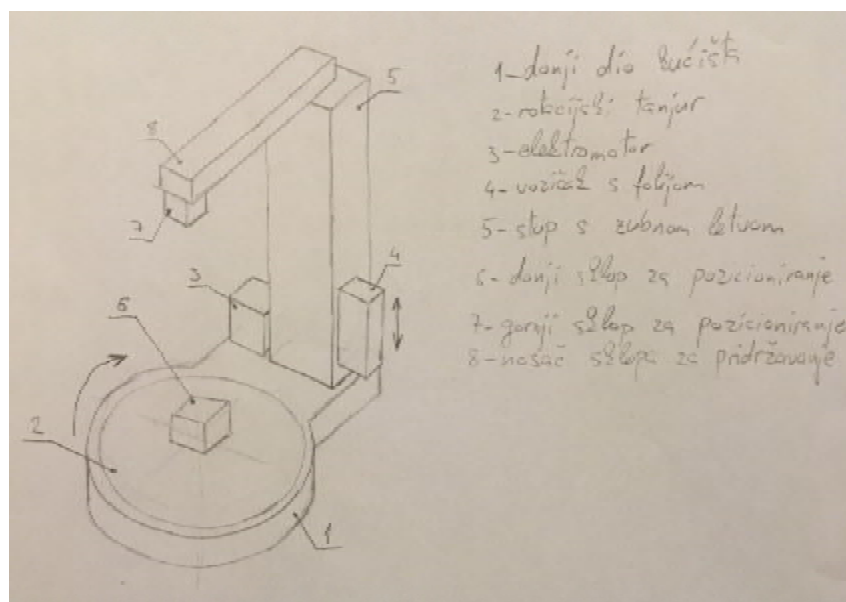 1-donji dio kućišta
2-rotacijski tanjur
3-elektromotor
4-vozičak s folijom
5-stup s zubnom letvom
6-donji sklop za pozicioniranje
7-gornji sklop za pozicioniranje
8-nosač sklopa za pridržavanje
5
8
7
4
3
6
2
1